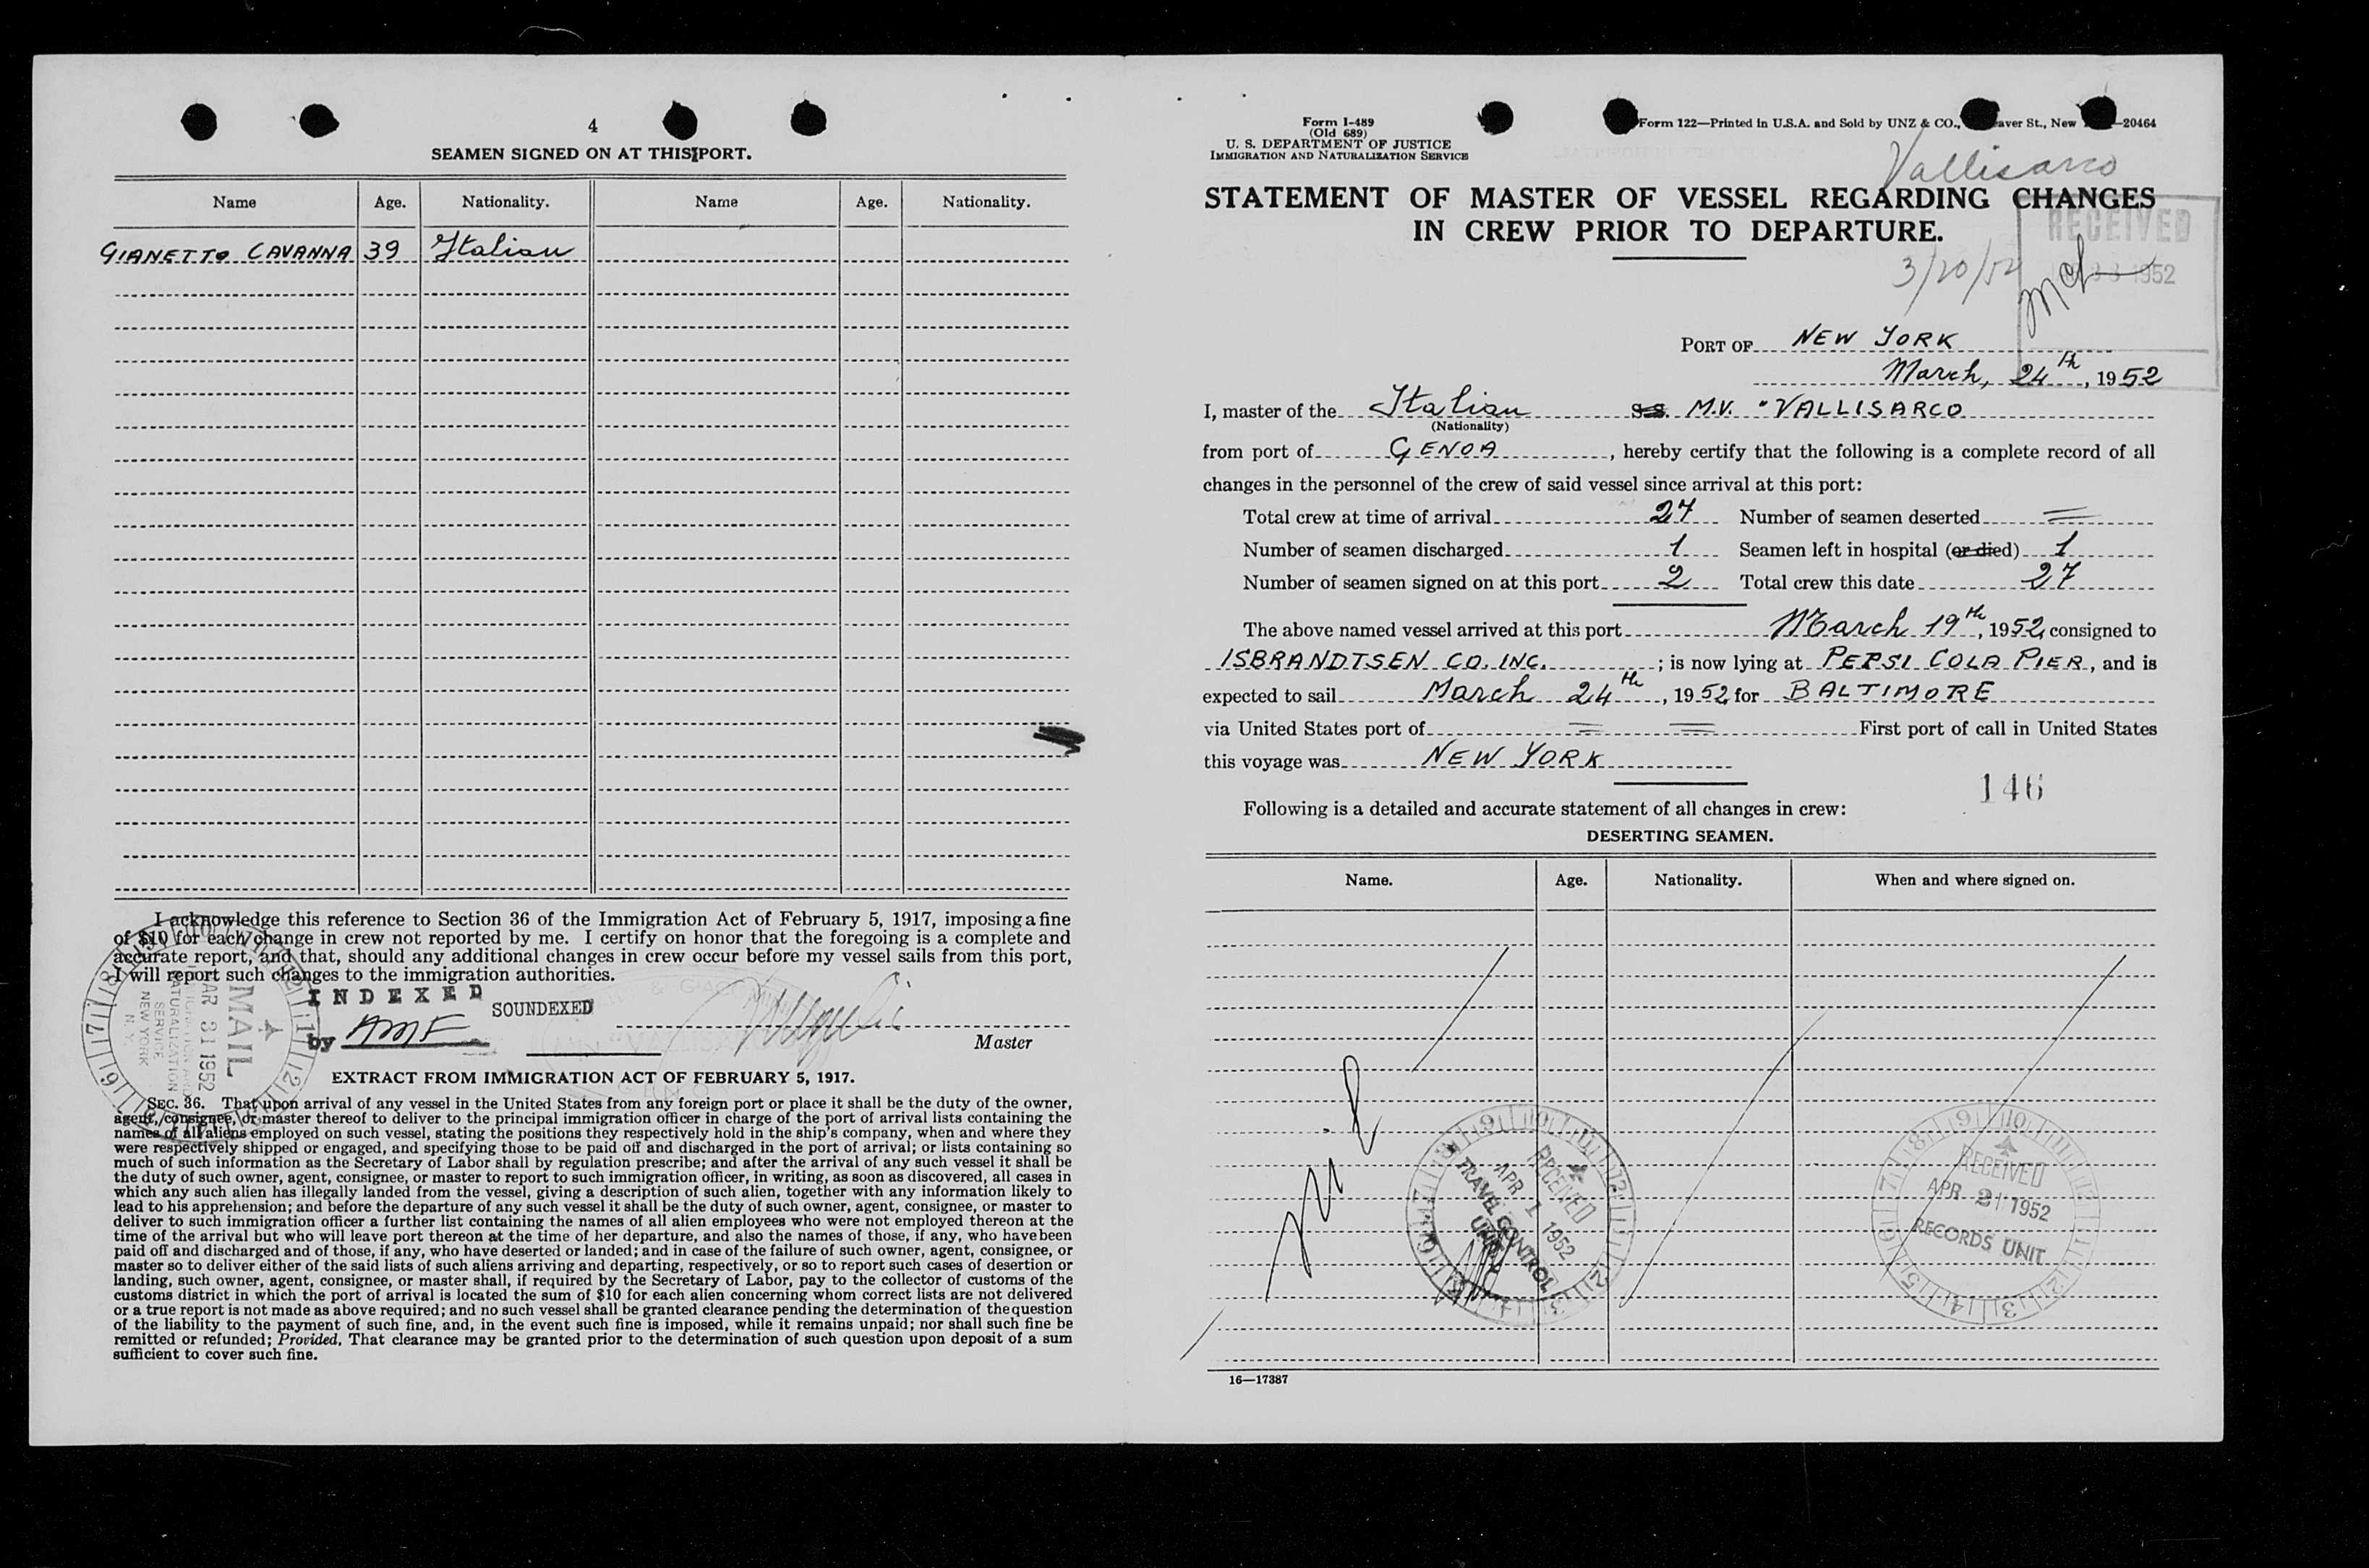 4
SEAMEN SIGNED ON AT THIS PORT.
Name Age. Nationality. Name Age. Nationality.
GIANETTO CAVANNA 39 Italian
I acknowledge this reference to Section 36 of the Immigration Act of February 5, 1917, imposing a fine
of $10 for each change in crew not reported by me. I certify on honor that the foregoing is a complete and
accurate report, and that, should any additional changes in crew occur before my vessel sails from this port,
I will report such changes to the immigration authorities.
INDEXED
SOUNDEXED
by AMF
Master
MAIL
MAR 31 1952
IMMIGRATION AND
NATURALIZATION
SERVICE
NEW YORK
N. Y.
EXTRACT FROM IMMIGRATION ACT OF FEBRUARY 5, 1917.
SEC. 36. That upon arrival of any vessel in the United States from any foreign port or place it shall be the duty of the owner,
agent, consignee, or master thereof to deliver to the principal immigration officer in charge of the port of arrival lists containing the
names of all aliens employed on such vessel, stating the positions they respectively hold in the ship's company, when and where they
were respectively shipped or engaged, and specifying those to be paid off and discharged in the port of arrival; or lists containing so
much of such information as the Secretary of Labor shall by regulation prescribe; and after the arrival of any such vessel it shall be
the duty of such owner, agent, consignee, or master to report to such immigration officer, in writing, as soon as discovered, all cases in
which any such alien has illegally landed from the vessel, giving a description of such alien, together with any information likely to
lead to his apprehension; and before the departure of any such vessel it shall be the duty of such owner, agent, consignee, or master to
deliver to such immigration officer a further list containing the names of all alien employees who were not employed thereon at the
time of the arrival but who will leave port thereon at the time of her departure, and also the names of those, if any, who have been
paid off and discharged and of those, if any, who have deserted or landed; and in case of the failure of such owner, agent, consignee, or
master so to deliver either of the said lists of such aliens arriving and departing, respectively, or so to report such cases of desertion or
landing, such owner, agent, consignee, or master shall, if required by the Secretary of Labor, pay to the collector of customs of the
customs district in which the port of arrival is located the sum of $10 for each alien concerning whom correct lists are not delivered
or a true report is not made as above required; and no such vessel shall be granted clearance pending the determination of the question
of the liability to the payment of such fine, and, in the event such fine is imposed, while it remains unpaid; nor shall such fine be
remitted or refunded; Provided, That clearance may be granted prior to the determination of such question upon deposit of a sum
sufficient to cover such fine.
Form I-489
(Old 689)
U. S. DEPARTMENT OF JUSTICE
IMMIGRATION AND NATURALIZATION SERVICE
Form 122—Printed in U.S.A. and Sold by UNZ & CO., aver St., New —20464
Vallisarco
STATEMENT OF MASTER OF VESSEL REGARDING CHANGES
IN CREW PRIOR TO DEPARTURE.
RECEIVED
1952
3/20/52
PORT OF NEW YORK
March, 24th, 1952
I, master of the Italian S.S. M.V. "VALLISARCO
(Nationality)
from port of GENOA, hereby certify that the following is a complete record of all
changes in the personnel of the crew of said vessel since arrival at this port:
Total crew at time of arrival 27 Number of seamen deserted =
Number of seamen discharged 1 Seamen left in hospital (or died) 1
Number of seamen signed on at this port 2 Total crew this date 27
The above named vessel arrived at this port March 19th, 1952, consigned to
ISBRANDTSEN CO. INC. ; is now lying at PEPSI COLA PIER, and is
expected to sail March 24th, 1952, for BALTIMORE
via United States port of = = First port of call in United States
this voyage was NEW YORK
146
Following is a detailed and accurate statement of all changes in crew:
DESERTING SEAMEN.
Name. Age. Nationality. When and where signed on.
RECEIVED
APR 1 1952
TRAVEL CONTROL
UNIT
RECEIVED
APR 2 1952
RECORDS UNIT
16—17387